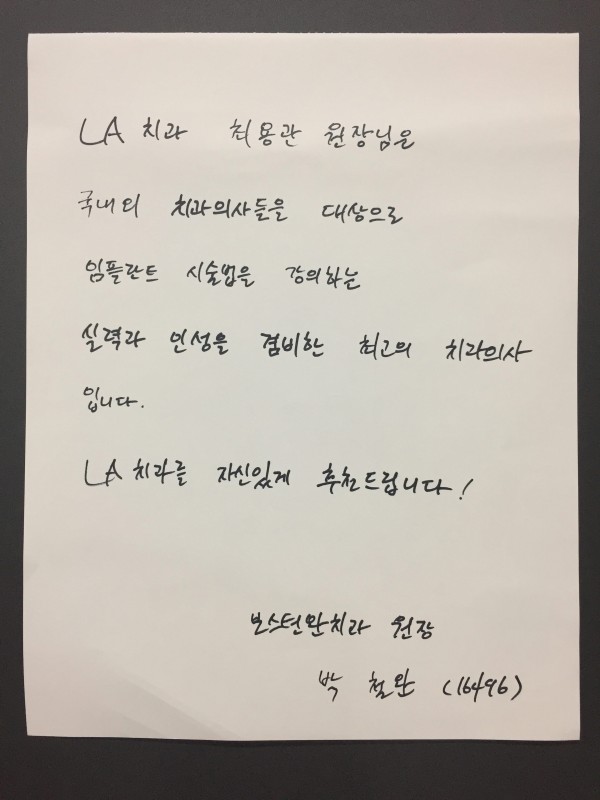 LA 치과 최용관 원장님은
국내외 치과의사들을 대상으로
임플란트 시술법을 강의하는
실력과 인성을 겸비한 최고의 치과의사
입니다.
LA 치과를 자신있게 추천드립니다!
보스턴완치과 원장
박 철완 (16496)